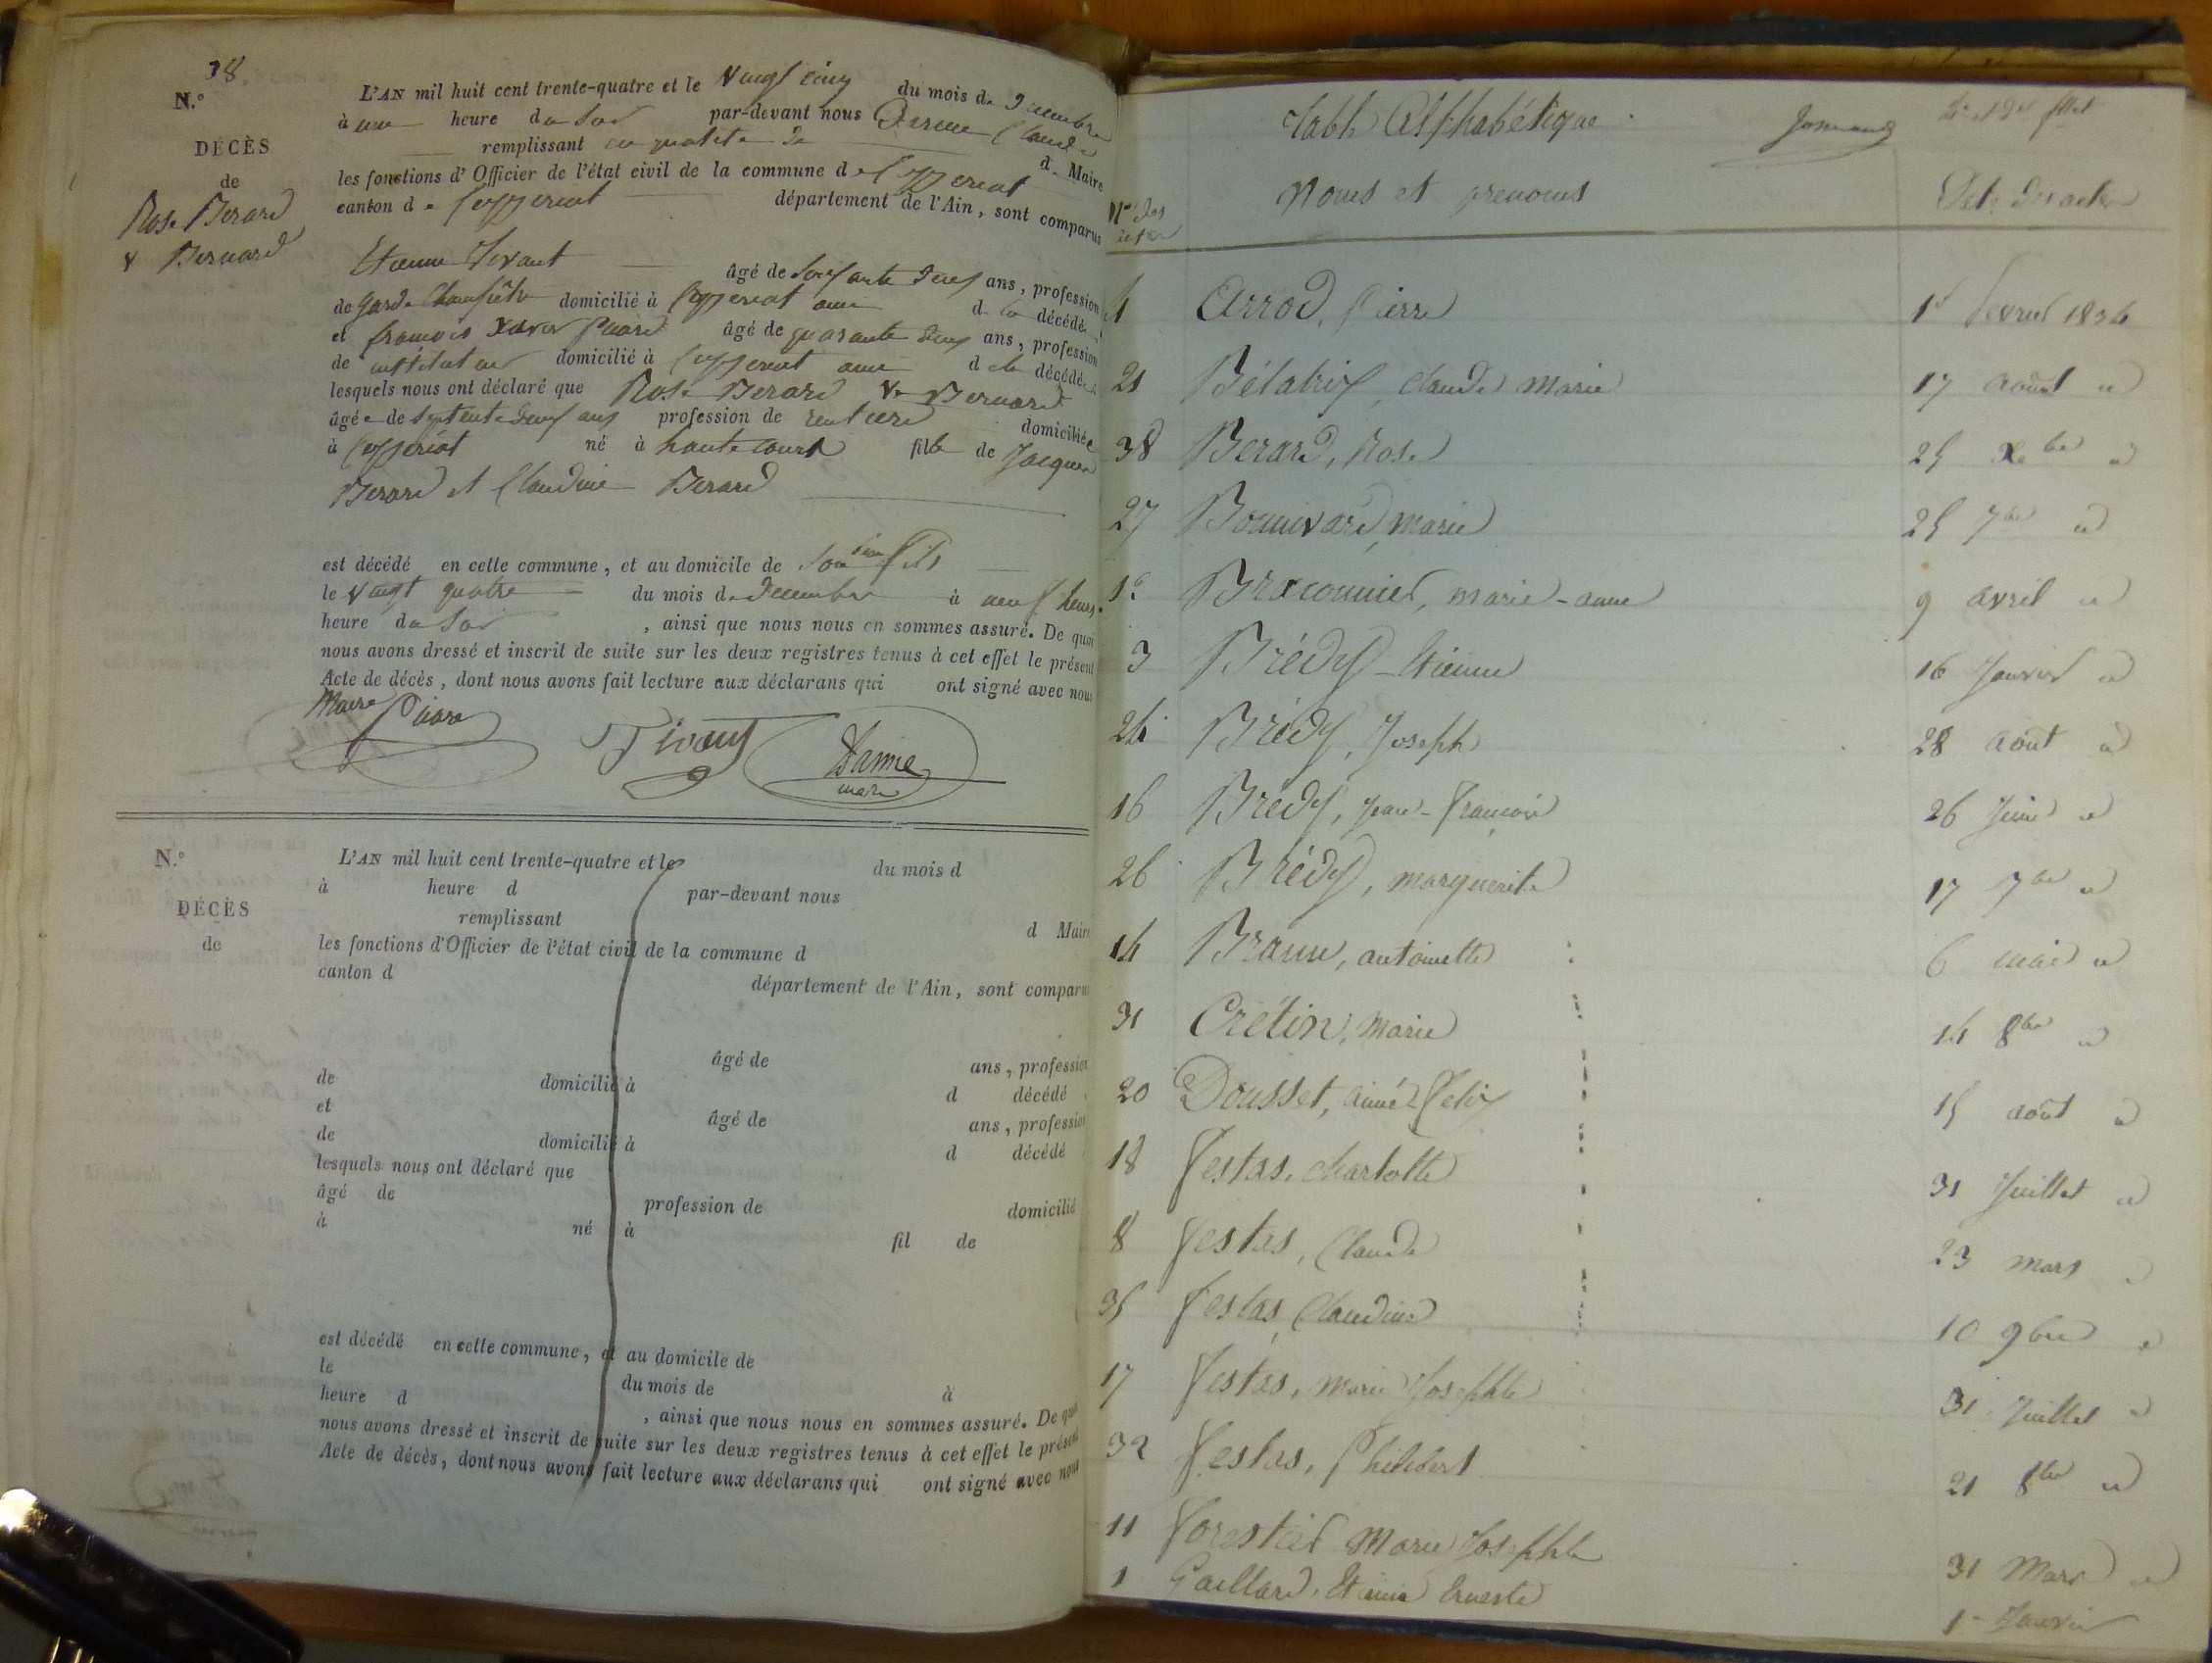 N.° 38.
DÉCÈS
de
Rose Berard
Ve Bernard
L'AN mil huit cent trente-quatre et le vingt cinq du mois de Decembre
à une heure du soir par-devant nous Claude
remplissant en qualité de d. Maire
les fonctions d'Officier de l'état civil de la commune de Ceyzeriat
canton de Ceyzeriat département de l'Ain, sont comparus
Etienne Tivant âgé de soixante deux ans, profession
de garde champêtre domicilié à Ceyzeriat ami de la décédée
et françois Xavier Puard âgé de quarante deux ans, profession
de instituteur domicilié à Ceyzeriat ami de la décédée
lesquels nous ont déclaré que Rose Berard Ve Bernard
âgée de septente deux ans profession de rentiere domiciliée
à Ceyzeriat né à hautecourt fille de Jacques
Berard et Claudine Berard
est décédé en cette commune, et au domicile de son fils
le vingt quatre du mois de Decembre à neuf heures
heure du soir, ainsi que nous nous en sommes assuré. De quoi
nous avons dressé et inscrit de suite sur les deux registres tenus à cet effet le présent
Acte de décès, dont nous avons fait lecture aux déclarans qui ont signé avec nous
Maire
maire
N.°
DÉCÈS
de
L'AN mil huit cent trente-quatre et le du mois d
à heure d par-devant nous
remplissant d Maire
les fonctions d'Officier de l'état civil de la commune d
canton d département de l'Ain, sont comparus
âgé de ans, profession
de domicilié à d décédé
et âgé de ans, profession
de domicilié à d décédé
lesquels nous ont déclaré que
âgé de profession de domicilié
à né à fil de
est décédé en cette commune, et au domicile de
le du mois de à
heure d , ainsi que nous nous en sommes assuré. De quoi
nous avons dressé et inscrit de suite sur les deux registres tenus à cet effet le présent
Acte de décès, dont nous avons fait lecture aux déclarans qui ont signé avec nous
Table Alphabétique
Nos des actes Noms et prenoms Dete des actes
4 Arrod, Pierre 1er fevrier 1834
21 Bélatrix, claude marie 17 août id
38 Berard, Rose 25 Xbre id
27 Bonnivard, marie 25 7bre id
12 Braconnier, marie-anne 9 avril id
3 Brédy Etienne 16 Janvier id
24 Brédy, Joseph 28 août id
16 Brédy, Jean-françois 26 Juin id
26 Brédy, marguerite 17 7bre id
14 Brame, antoinette 6 mai id
31 Crétin, marie 14 8bre id
20 Dousset, aimé Felix 15 août id
18 Festas, charlotte 31 Juillet id
8 festas, Claude 23 mars id
35 festas, Claudine 10 9bre id
17 festas, marie Josephte 31 Juillet id
32 festas, Philibert 21 8bre id
11 forestier Marie Josephte 31 Mars id
1 Gaillard, Etienne Erneste 1er Janvier